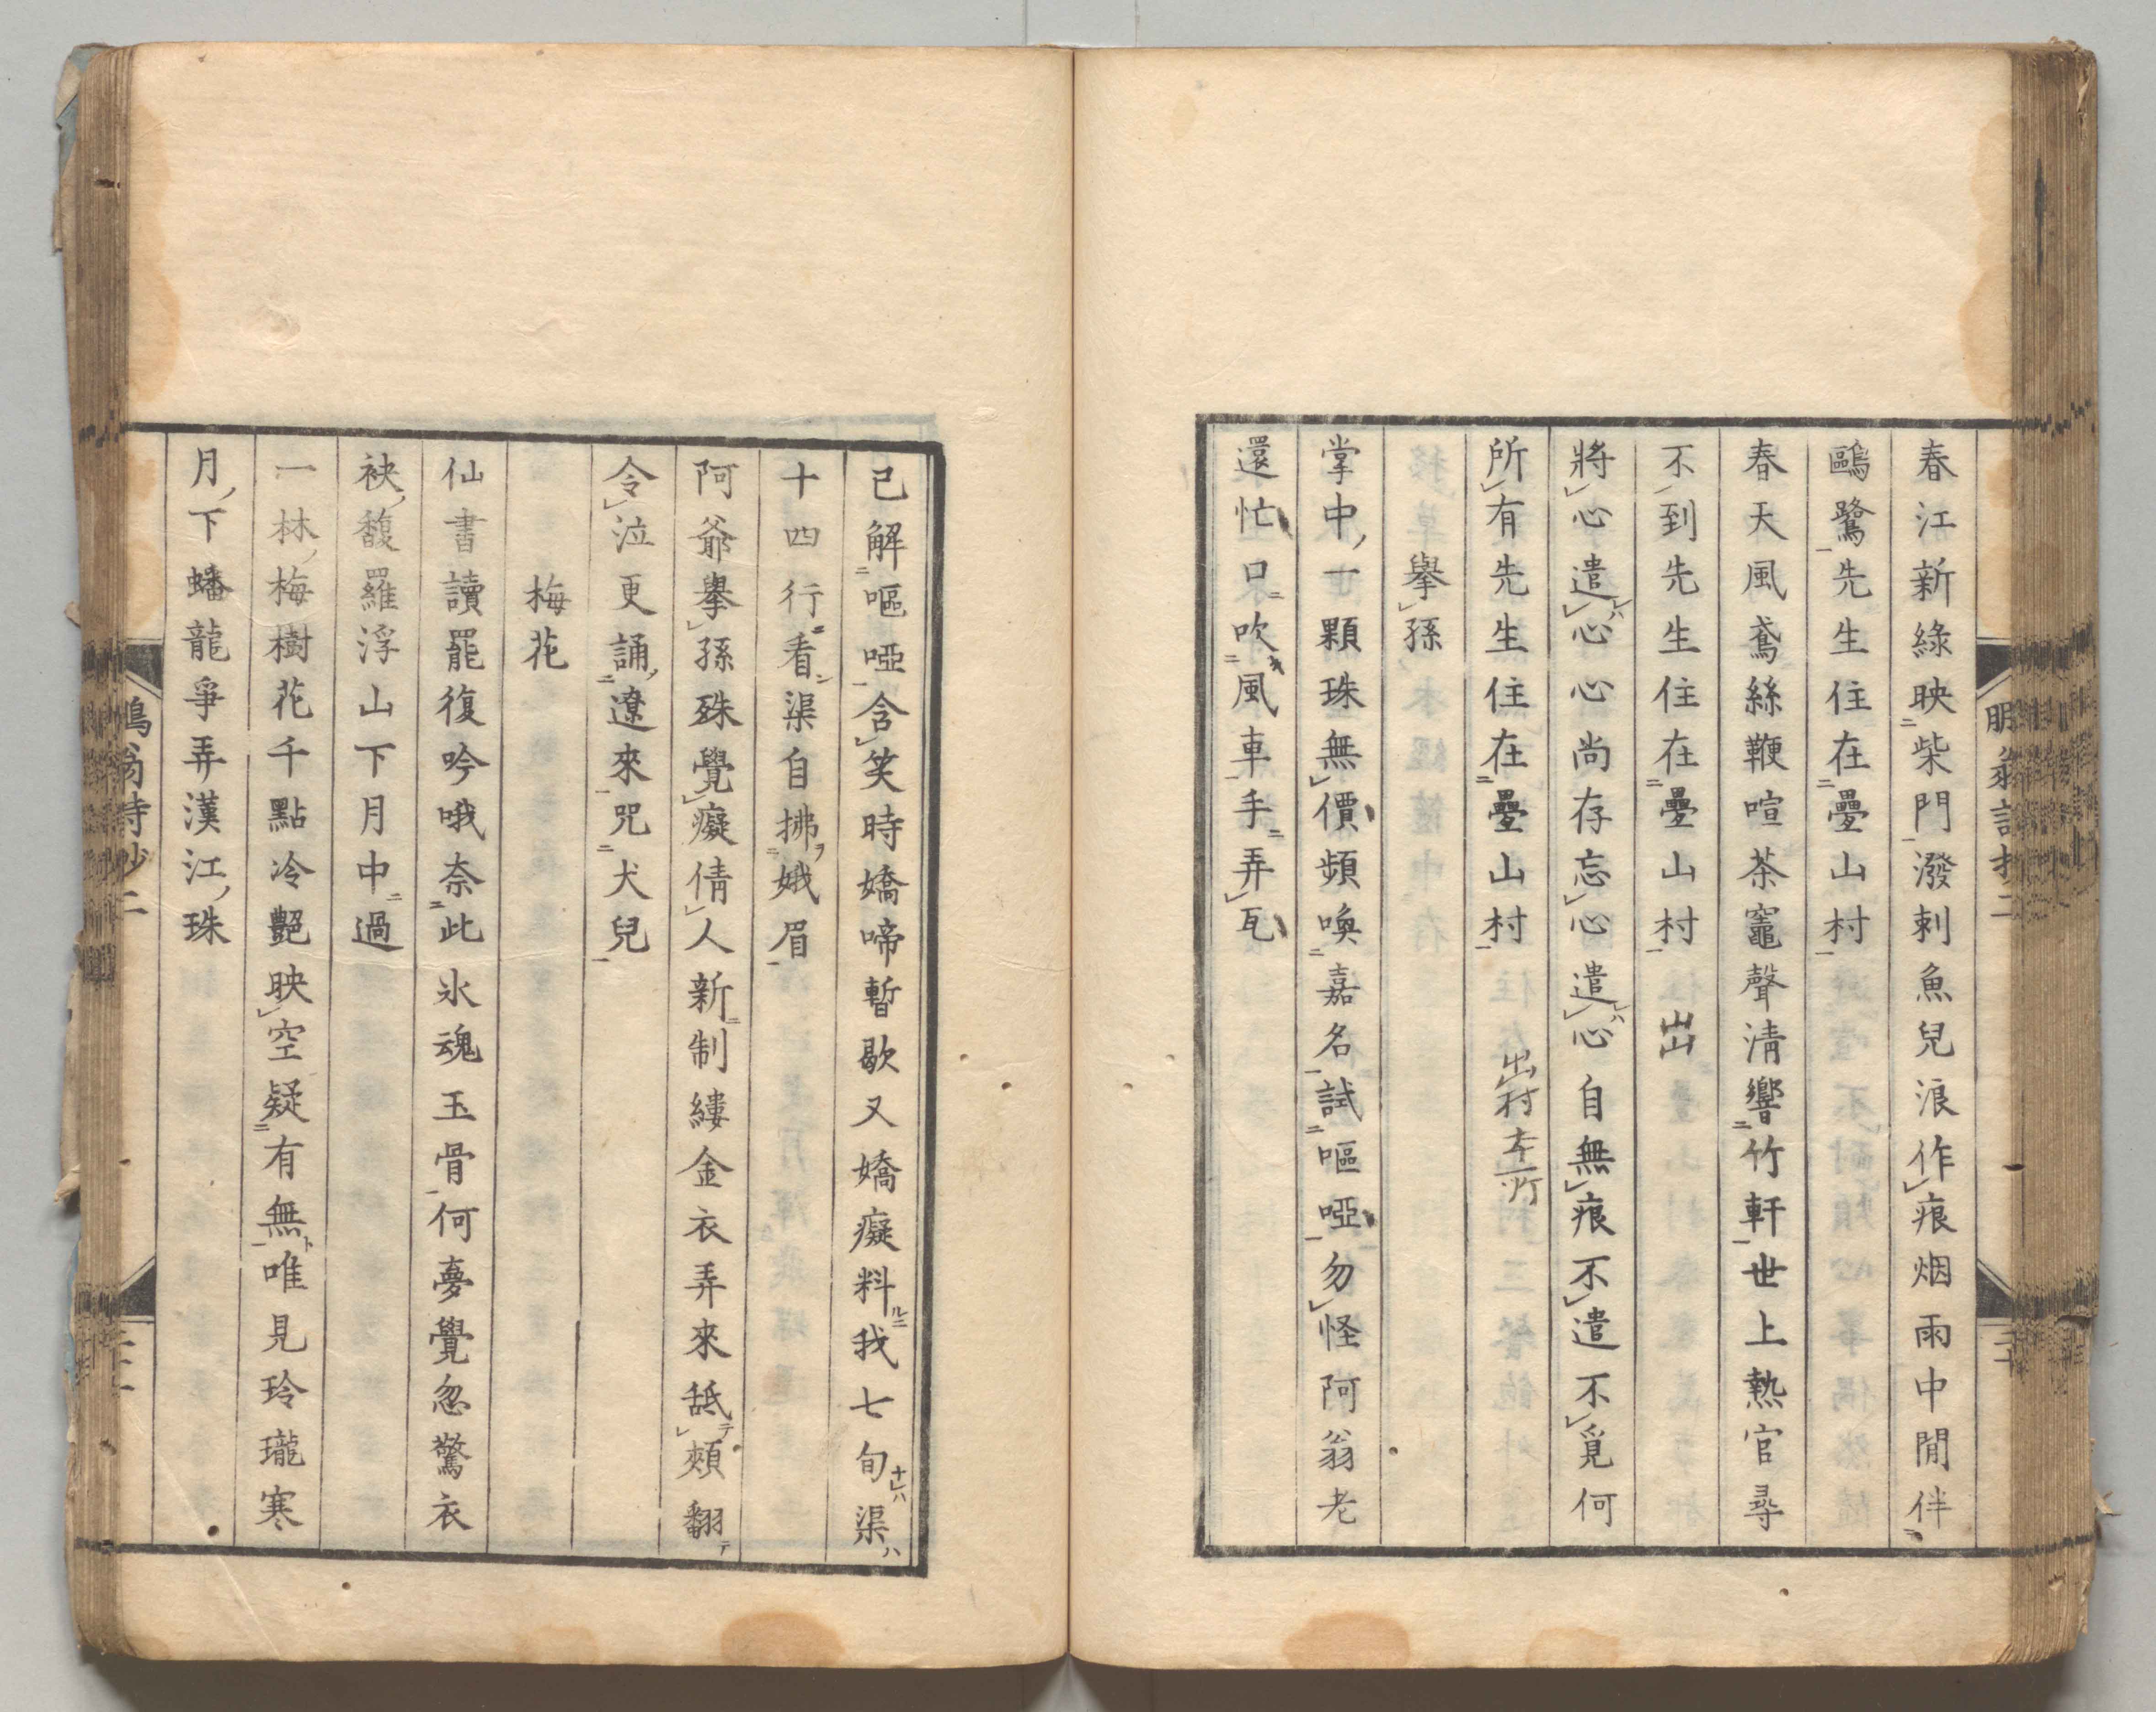 春江新綠映柴門潑剌魚兒浪作痕烟雨中閒伴
鷗鷺先生住在疊山村
春天風鳶絲鞭喧茶竈聲淸響竹軒世上熱官尋
不到先生住在疊山村
將心遣心心尚存忘心遣心自無痕不遣不覓何
所有先生住在疊山村
擧孫
掌中一顆珠無價頻喚嘉名試嘔啞勿怪阿翁老
還忙口吹風車手弄瓦
已解嘔啞含笑時嬌啼暫歇又嬌癡料我七旬渠
十四行看渠自拂娥眉
阿爺擧孫殊覺癡倩人新制縷金衣弄來舐頰翻
令泣更誦遼來咒犬兒
梅花
仙書讀罷復吟哦奈此氷魂玉骨何夢覺忽驚衣
袂馥羅浮山下月中過
一林梅樹花千點冷艷映空疑有無唯見玲瓏寒
月下蟠龍爭弄漢江珠